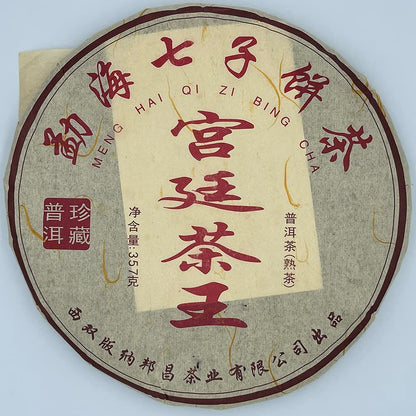 勐海七子饼茶
MENG HAI QI ZI BING CHA
宫廷茶王
珍藏
普洱
净含量:357克
普洱茶(熟茶)
西双版纳邦昌茶业有限公司出品